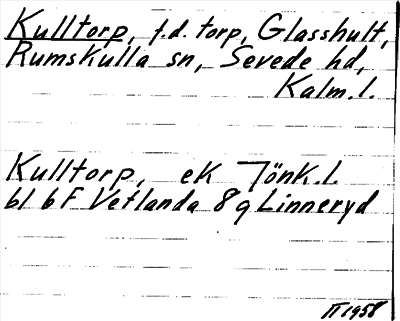 Kulltorp, f.d. torp, Glasshult,
Rumskulla sn, Sevede hd,
Kalm. l.
Kulltorp, ek Jönk. l.
bl 6F Vetlanda 8g Linneryd
II 1958